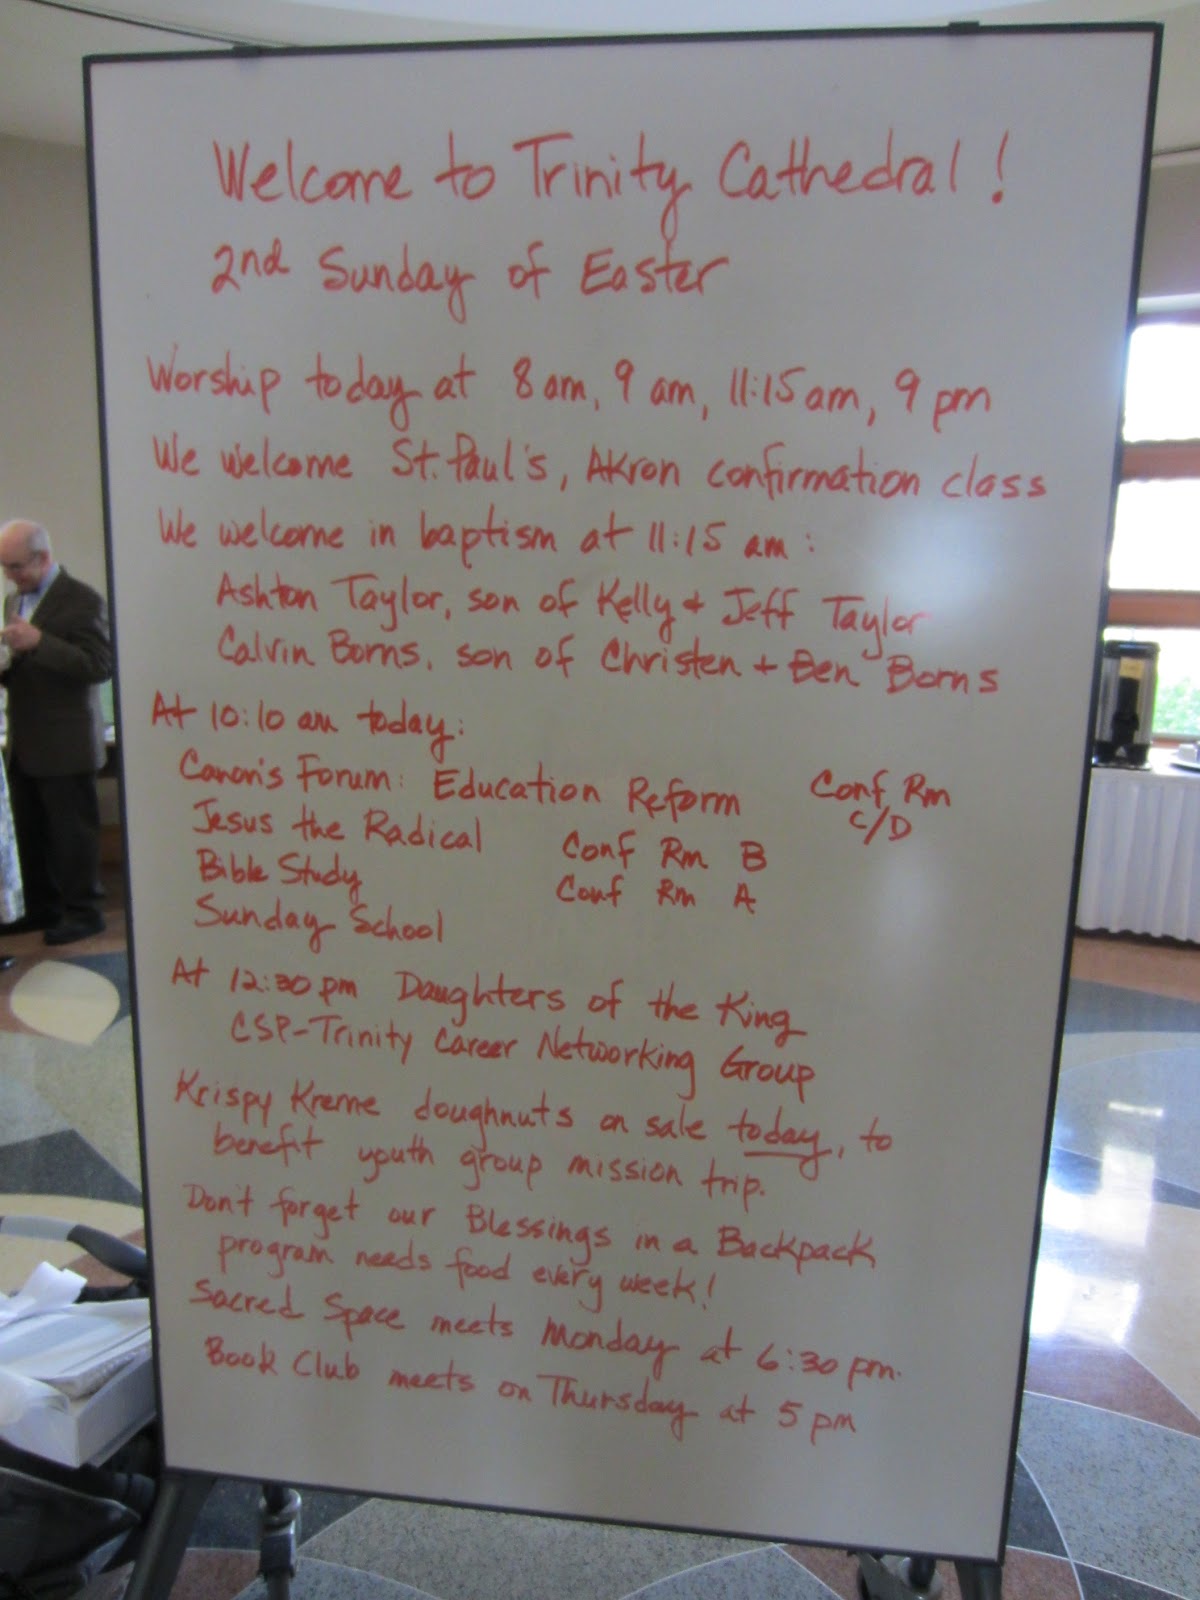 Welcome to Trinity Cathedral!
2nd Sunday of Easter
Worship today at 8 am, 9 am, 11:15 am, 9 pm
We welcome St. Paul's, Akron confirmation class
We welcome in baptism at 11:15 am:
Ashton Taylor, son of Kelly + Jeff Taylor
Calvin Borns, son of Christen + Ben Borns
At 10:10 am today:
Canon's Forum: Education Reform Conf Rm
C/D
Jesus the Radical Conf Rm B
Bible Study Conf Rm A
Sunday School
At 12:30 pm Daughters of the King
CSP-Trinity Career Networking Group
Krispy Kreme doughnuts on sale today, to
benefit youth group mission trip.
Don't forget our Blessings in a Backpack
program needs food every week!
Sacred Space meets Monday at 6:30 pm.
Book Club meets on Thursday at 5 pm